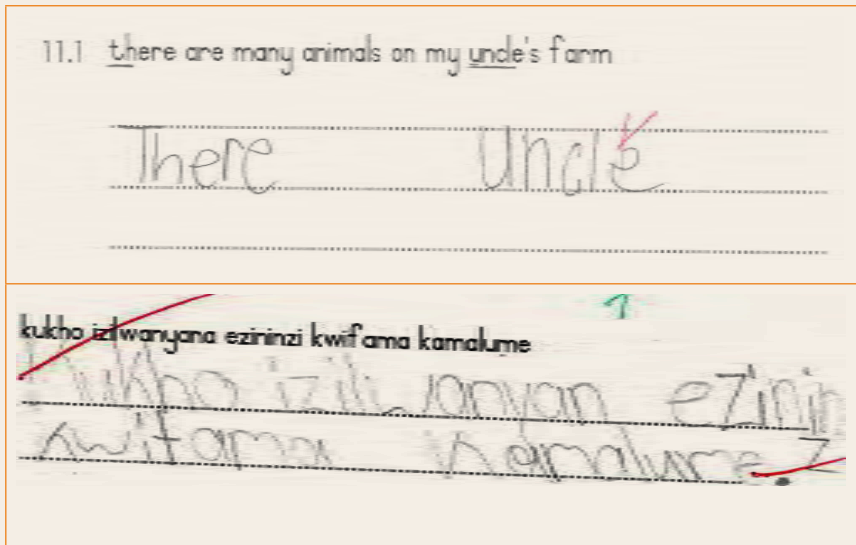 11.1 there are many animals on my uncle's farm
There Uncle
kukho izilwanyana ezininzi kwifama kamalume
Kukho iziliwanyan ezinin
kwifama kamalume. z